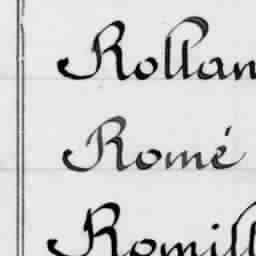 Rollan
Romé
Romill